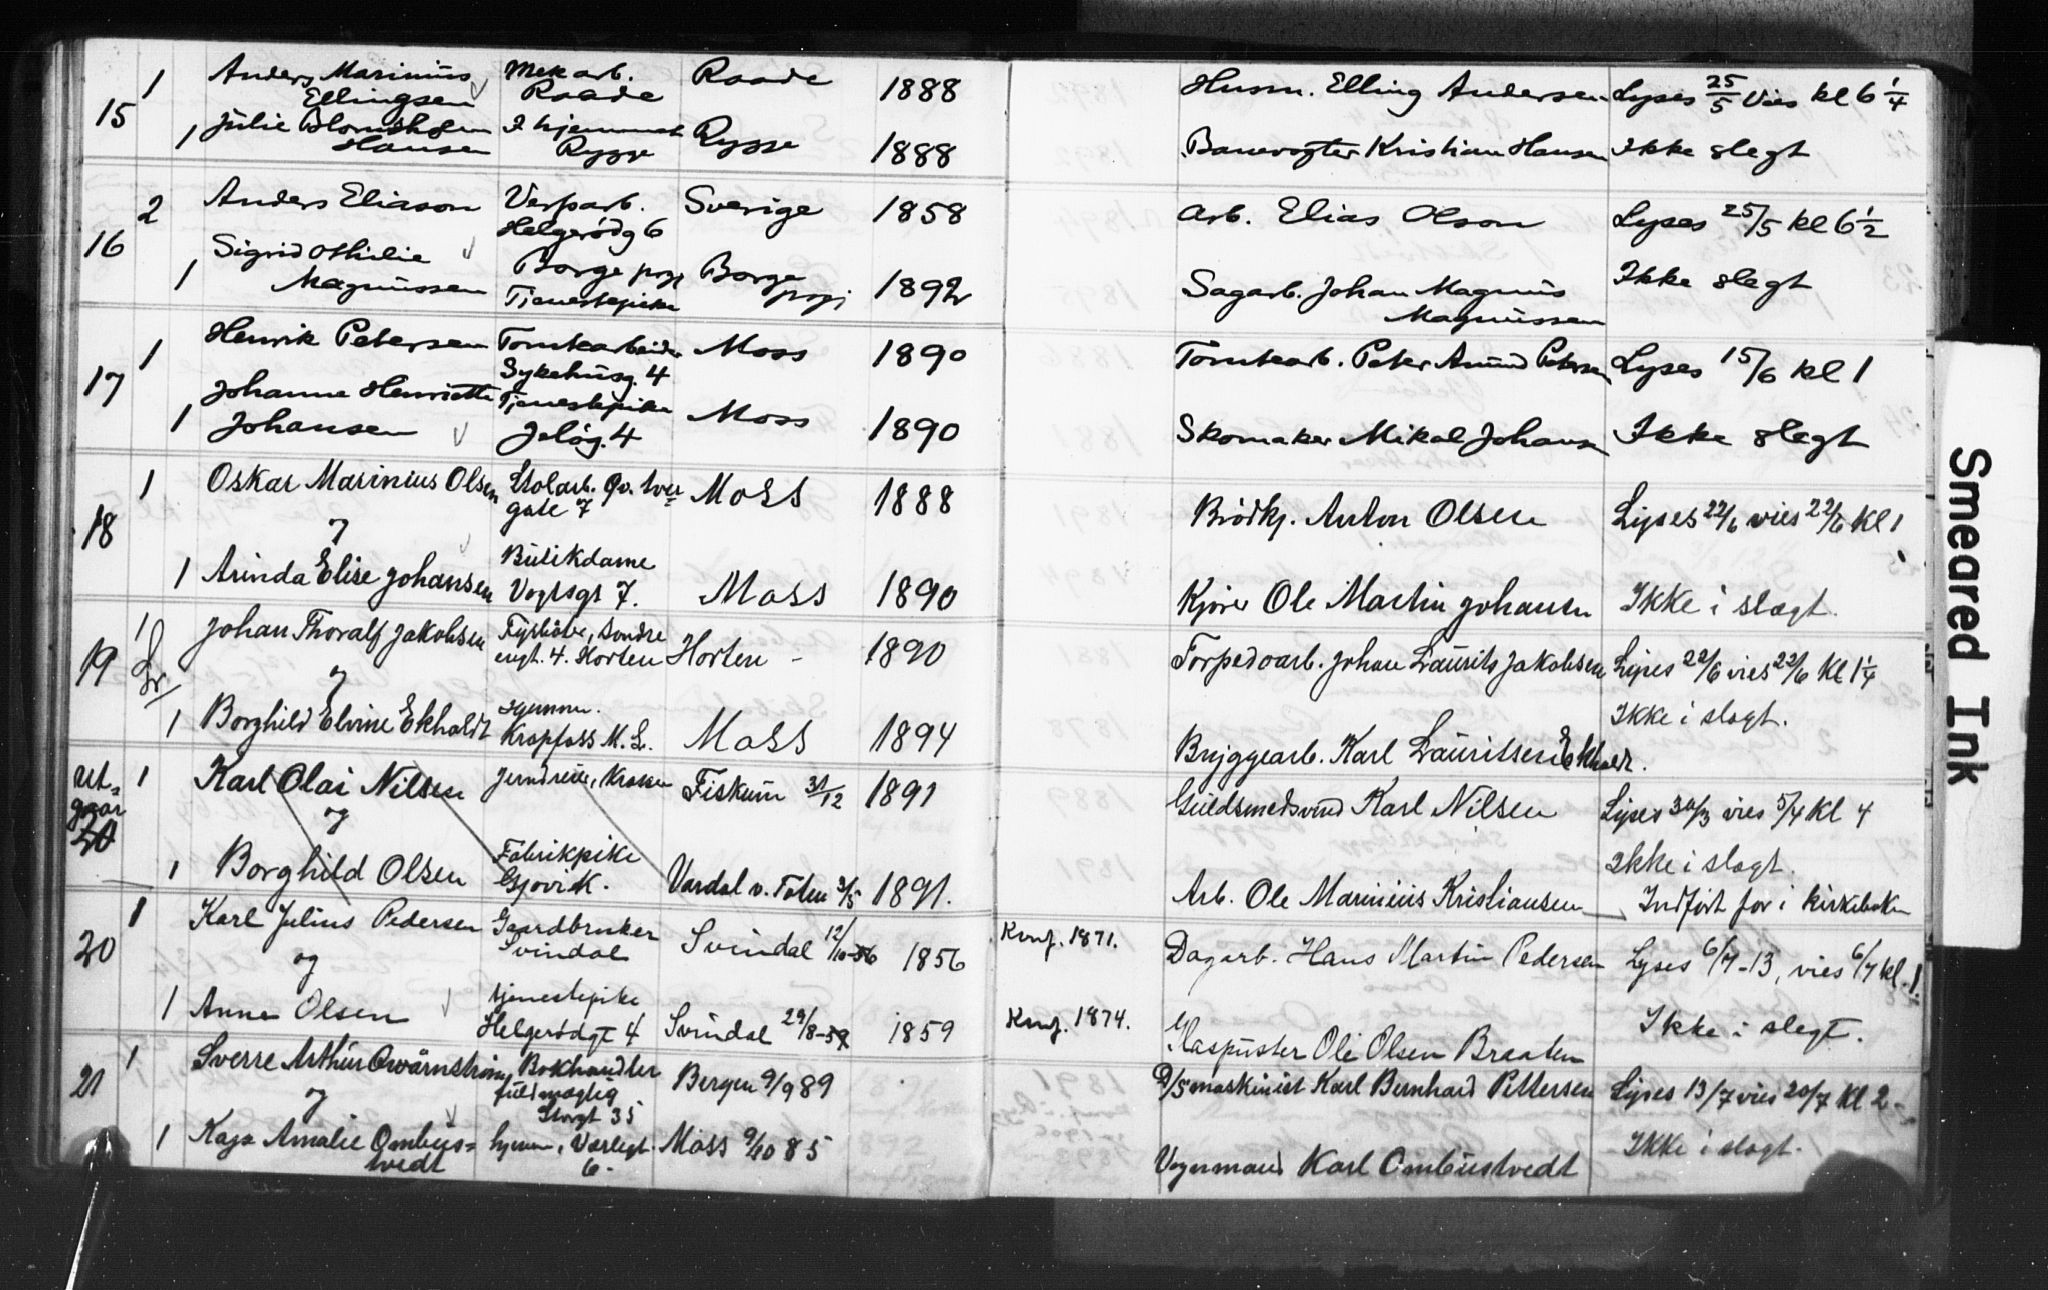 15
1 Anders Marinius Mekarb. Raade 1888 Husm. Elling Andersen Lyses 25/5 Vies kl 6 1/4
Ellingsen Raade
1 Julie Hjemme Rygge 1888 Banevogter Kristian Hansen Ikke slegt
Hansen Rygge
16
2 Anders Eliason Verparb. Sverige 1858 Arb. Elias Olson Lyses 25/5 kl 6 1/2
Helgerødg 6
1 Sigrid Othilie Borge prgj Borge 1892 Sagarb. Johan Magnus Ikke slegt
Magnussen Tjenestepike prgj Magnussen
17
1 Henrik Petersen Tomtearbeider Moss 1890 Tomtearb. Peter Amund Petersen Lyses 15/6 kl 1
Sykehusg. 4
1 Johanne Henriette Tjenestepike Moss 1890 Skomaker Mikal Johansen Ikke slegt
Johansen Jeløg. 4
18
1 Oskar Marinius Olsen Stolarb. Qv. tver= Moss 1888 Brødkj. Anton Olsen Lyses 22/6 vies 22/6 kl 1
gate 7
og
1 Arinda Elise Johansen Butikdame Moss 1890 Kjører Ole Martin Johansen Ikke i slægt.
Vogtsgt 7.
19
1 Johan Thoralf Jakobsen Fyrbøter, søndre Horten - 1890 Torpedoarb. Johan Laurits Jakobsen Lyses 22/6 vies 22/6 kl 1 1/4
engt. 4. Horten
og
1 Borghild Elvine Ekholdt hjemme. Moss 1894 Bryggearb. Karl Lauritsen Ekholdt. Ikke i slægt.
Krapfoss M. L.
Ut=
gaar
20
1 Karl Olai Nilsen Jerndreier, Fiskum 31/12 1891 Guldsmedsvend Karl Nilsen Lyses 30/3 vies 5/4 kl 4
og
1 Borghild Olsen Fabrikpike Vardal v. Toten 3/5 1891. Arb. Ole Marinius Kristiansen Ikke i slægt.
Gjøvik. Indført før i kirkeboken
20
1 Karl Julius Pedersen Gaardbruker Svindal 12/10-56 1856 Konf. 1871. Dagarb. Hans Martin Pedersen Lyses 6/7-13, vies 6/7 kl. 1.
Svindal
og
1 Anne Olsen tjenestepike Svindal 29/8-59 1859 Konf. 1874. Ole Olsen Braaten Ikke i slegt.
Helgerødgt 4
21
1 Sverre Arthur Qvarnstrøm Bokhandler Bergen 9/9 89 D/S maskinist Karl Bernhard Pettersen Lyses 13/7 vies 20/7 kl 2 -
fuldmægtig
og Storgt 35
1 Kaja Amalie Ombus= hjemme, Varlegt. Moss 9/10 85 Vognmand Karl Ombustvedt Ikke i slægt.
tvedt 6.
Smeared Ink